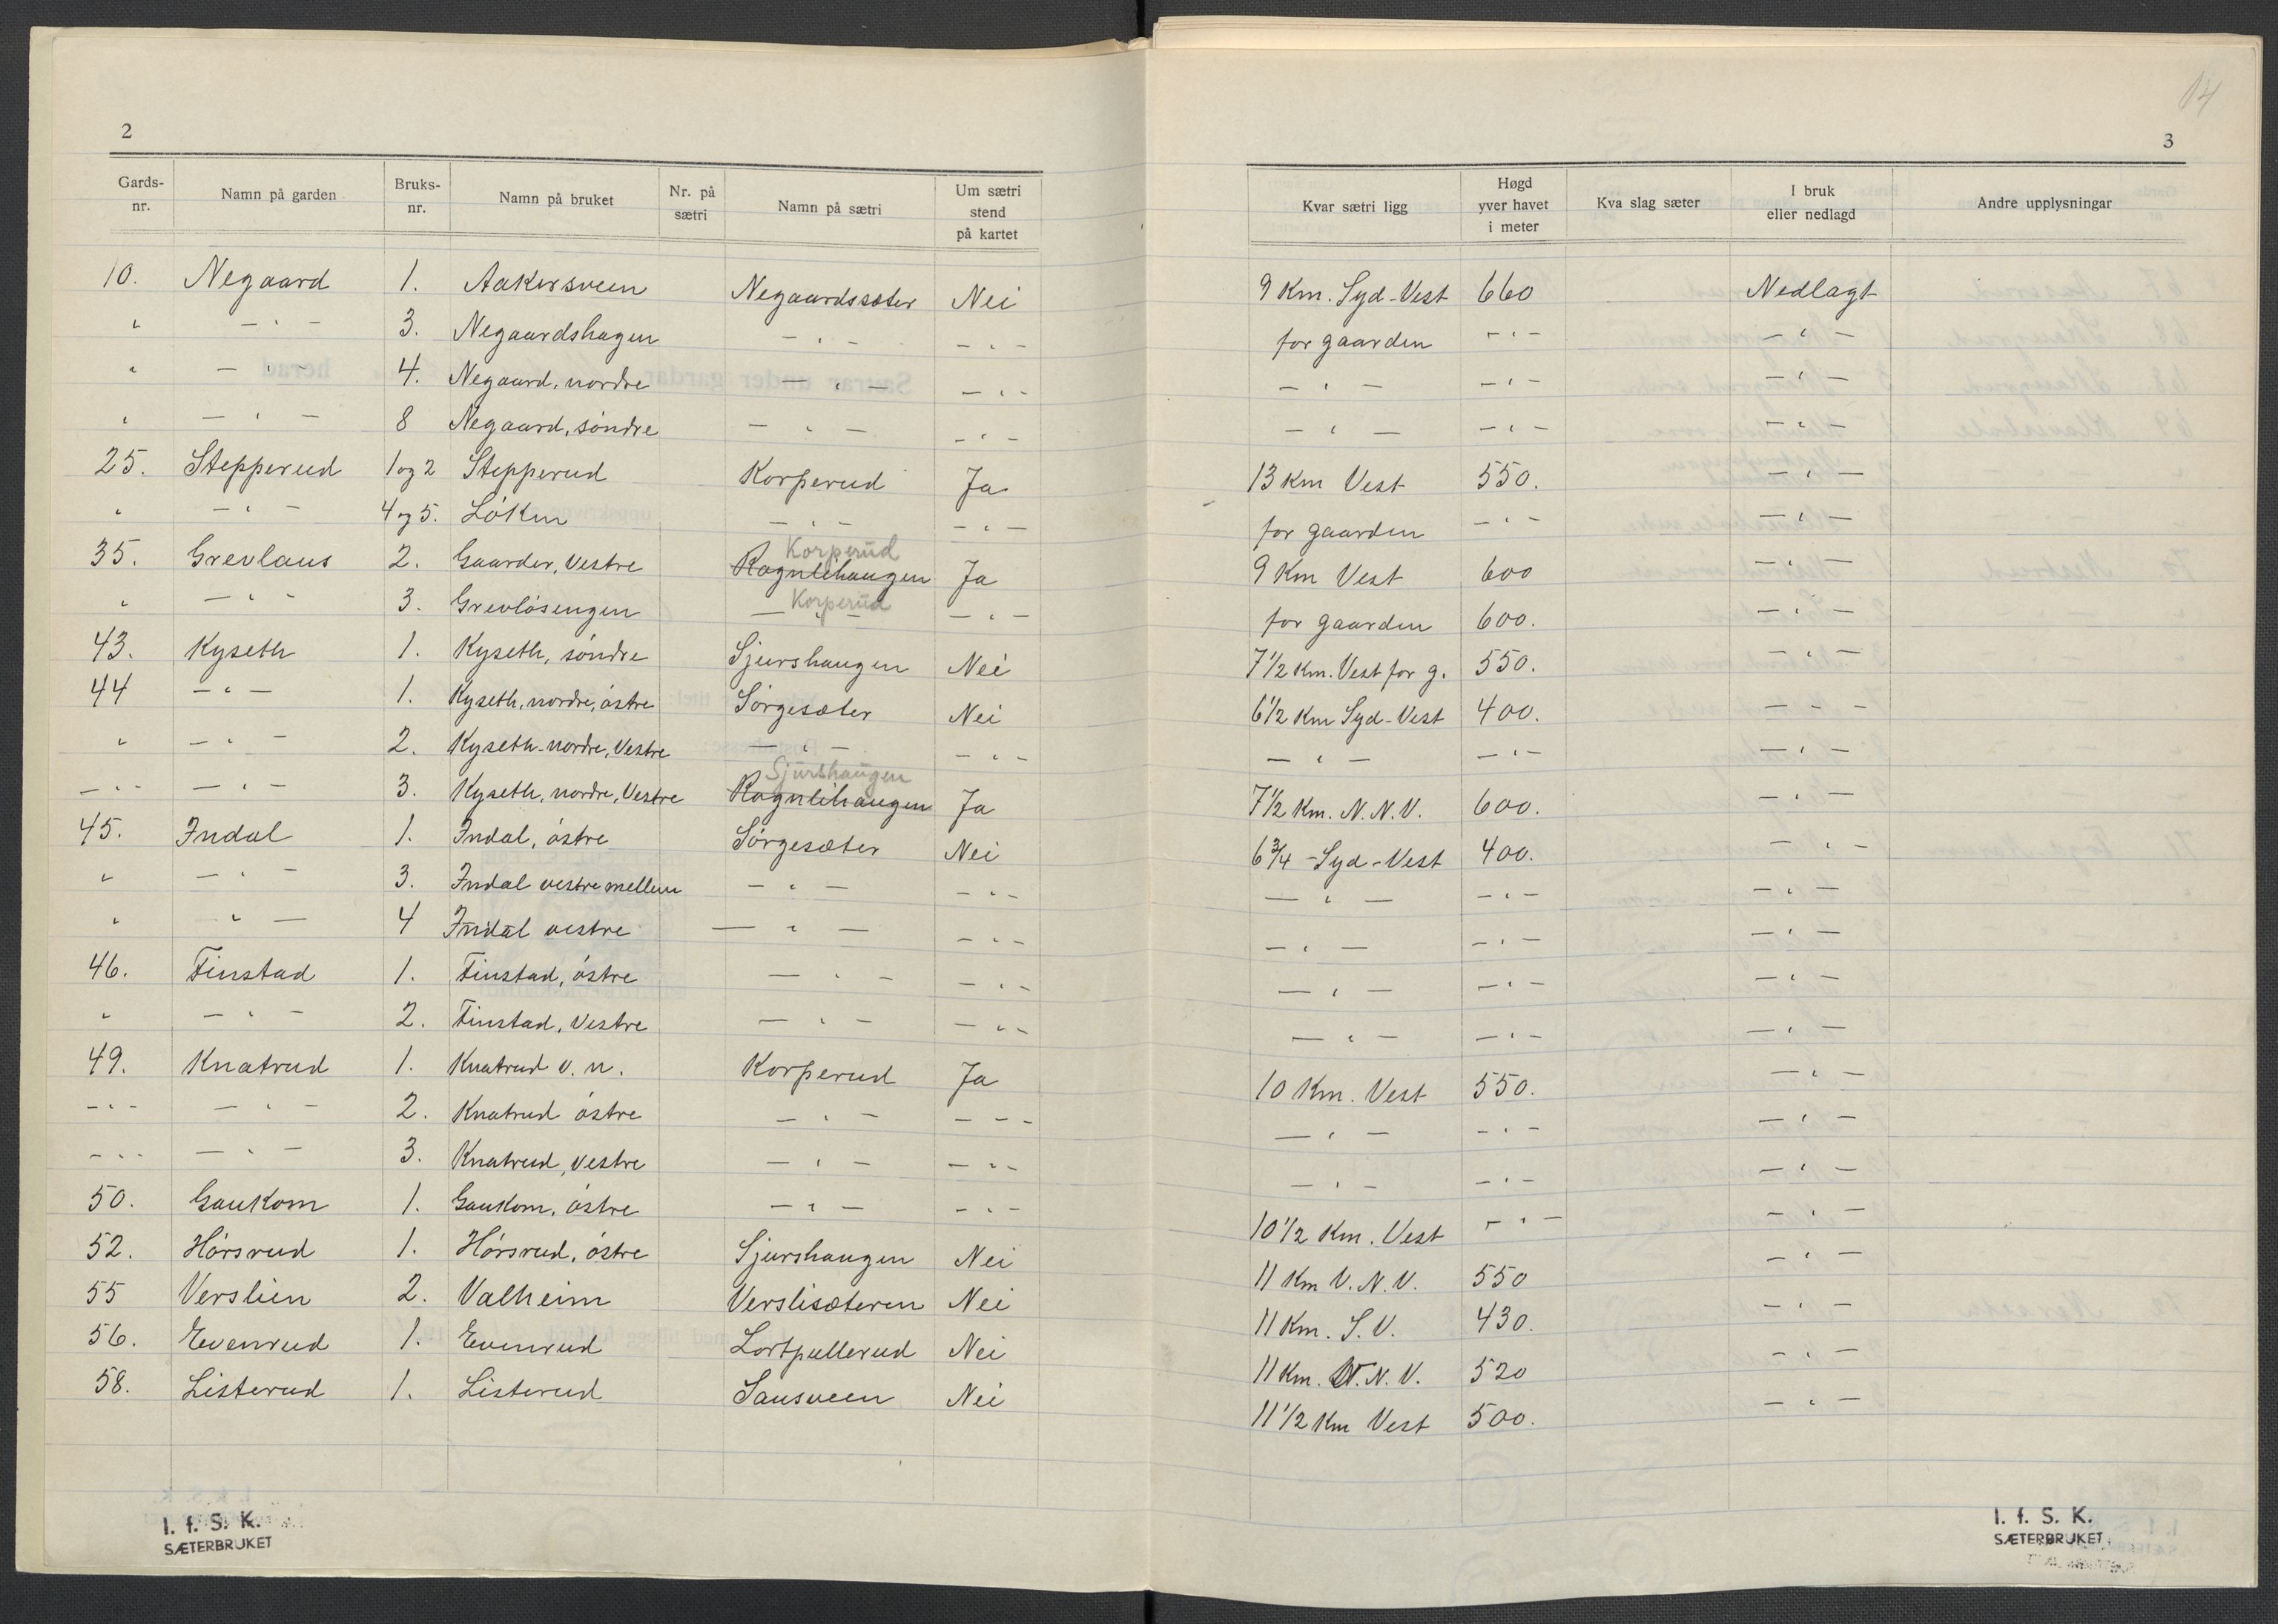 2
Gards-nr. Namn på garden Bruks-nr. Namn på bruket Nr. på sætri Namn på sætri Um sætri stend på kartet
10. Negaard 1. Aakersveen Negaardssæter Nei
" — " — 3. Negaardshagen — " — — " —
" — " — 4. Negaard, nordre — " — — " —
" — " — 8 Negaard, søndre — " — — " —
25. Stepperud 1 og 2 Stepperud Korperud Ja
" — " — 4 og 5. Løken — " — — " —
35. Grevlaus 2. Gaarder, Vestre Rognlihaugen Korperud Ja
" — " — 3. Grevløsengen — " — Korperud — " —
43. Kyseth 1. Kyseth, søndre Sjurshaugen Nei
44 — " — 1. Kyseth, nordre, østre Sørgesæter Nei
" — " — 2. Kyseth-nordre, Vestre — " — — " —
— " — — " — 3. Kyseth, nordre, Vestre Rognlihaugen Sjurshaugen Ja
45. Indal 1. Indal, østre Sørgesæter Nei
" — " — 3. Indal vestre mellem — " — — " —
" " — 4 Indal vestre — " — — " —
46. Finstad 1. Finstad, østre — " — — " —
" — " — 2. Finstad, Vestre — " — — " —
49. Knatrud 1. Knatrud v. n. Korperud Ja
— " — — " — 2. Knatrud østre — " — — — —
— " — — " — 3. Knatrud, vestre — " — — " —
50. Gaukom 1. Gaukom, østre — " — — " —
52. Hørsrud 1. Hørsrud, østre Sjurshaugen Nei
55 Verslien 2. Valheim Verslisæteren Nei
56. Evenrud 1. Evenrud Lortpullerud Nei
58. Listerud 1. Listerud Sausveen Nei
I. f. S. K.
SÆTERBRUKET
14
3
Kvar sætri ligg Høgd yver havet i meter Kva slag sæter I bruk eller nedlagd Andre upplysningar
9 Km. Syd-Vest 660 Nedlagt
for gaarden — " — — " —
— " — — " — — " —
— " — — " — — " —
13 Km Vest 550. — " —
for gaarden — " — — " —
9 Km Vest 600 — " —
for gaarden 600. — " —
7 1/2 Km. Vest for g. 550. — " —
6 1/2 Km Syd-Vest 400. — " —
— " — — " — — " —
7 1/2 Km. N.N.V. 600. — " —
6 3/4 - Syd-Vest 400. — " —
— " — — " — — " —
— " — — " — — " —
— " — — " — — " —
— " — — " — — " —
10 Km. Vest 550. — " —
— " — — " — — " —
— " — — " — — " —
10 1/2 Km. Vest — " — — " —
11 Km V.N.V. 550 — " —
11 Km. S.V. 430. — " —
11 Km. V.N.V. 520 — " —
11 1/2 Km Vest 500. — " —
I. f. S. K.
SÆTERBRUKET